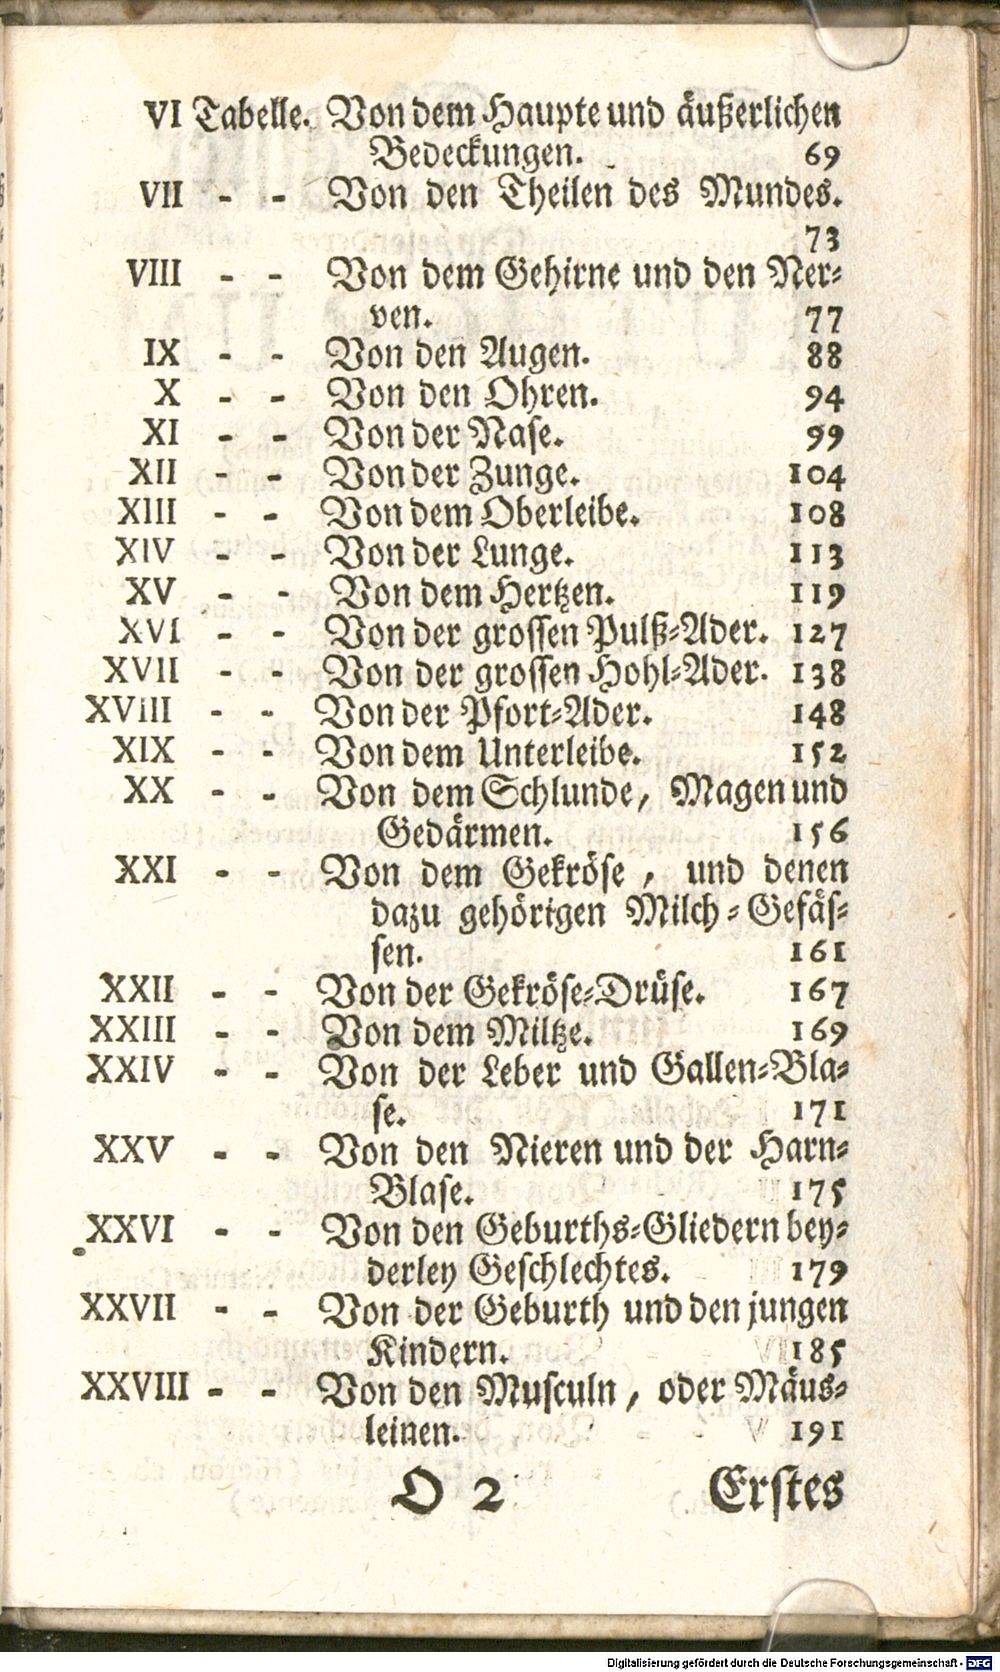 VI Tabelle. Von dem Haupte und äußerlichen
Bedeckungen. 69
VII - - Von den Theilen des Mundes.
73
VIII - - Von dem Gehirne und den Ner-
ven. 77
IX - - Von den Augen. 88
X - - Von den Ohren. 94
XI - - Von der Nase. 99
XII - - Von der Zunge. 104
XIII - - Von dem Oberleibe. 108
XIV - - Von der Lunge. 113
XV - - Von dem Hertzen. 119
XVI - - Von der grossen Pulß-Ader. 127
XVII - - Von der grossen Hohl-Ader. 138
XVIII - - Von der Pfort-Ader. 148
XIX - - Von dem Unterleibe. 152
XX - - Von dem Schlunde, Magen und
Gedärmen. 156
XXI - - Von dem Gekröse, und denen
dazu gehörigen Milch-Gefäs-
sen. 161
XXII - - Von der Gekröse-Drüse. 167
XXIII - - Von dem Miltze. 169
XXIV - - Von der Leber und Gallen-Bla-
se. 171
XXV - - Von den Nieren und der Harn-
Blase. 175
XXVI - - Von den Geburths-Gliedern bey-
derley Geschlechtes. 179
XXVII - - Von der Geburth und den jungen
Kindern. 185
XXVIII - - Von den Musculn, oder Mäus-
leinen. 191
O 2 Erstes
Digitalisierung gefördert durch die Deutsche Forschungsgemeinschaft - DFG